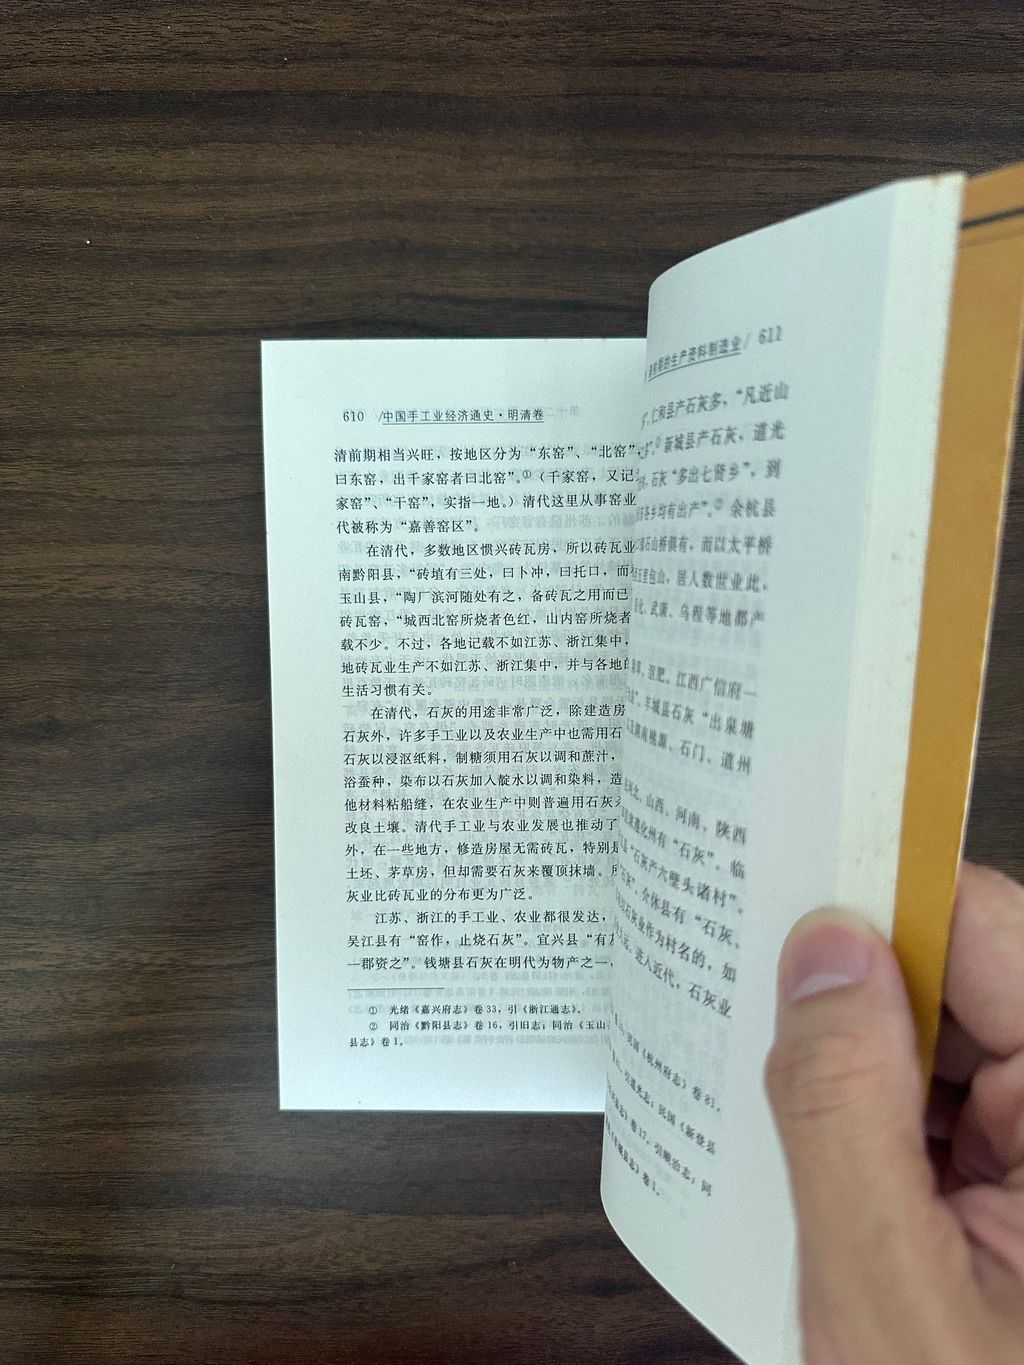 610 /中国手工业经济通史·明清卷
清前期相当兴旺，按地区分为“东窑”、“北窑”，
曰东窑，出千家窑者曰北窑”。①（千家窑，又记
家窑”、“干窑”，实指一地。）清代这里从事窑业
代被称为“嘉善窑区”。
在清代，多数地区惯兴砖瓦房，所以砖瓦业
南黔阳县，“砖埴有三处，曰卜冲，曰托口，而
玉山县，“陶厂滨河随处有之，备砖瓦之用而已
砖瓦窑，“城西北窑所烧者色红，山内窑所烧者
载不少。不过，各地记载不如江苏、浙江集中，
地砖瓦业生产不如江苏、浙江集中，并与各地
生活习惯有关。
在清代，石灰的用途非常广泛，除建造房
石灰外，许多手工业以及农业生产中也需用石
石灰以浸沤纸料，制糖须用石灰以调和蔗汁，
浴蚕种，染布以石灰加入靛水以调和染料，造
他材料粘船缝，在农业生产中则普遍用石灰
改良土壤。清代手工业与农业发展也推动了
外，在一些地方，修造房屋无需砖瓦，特别是
土坯、茅草房，但却需要石灰来覆顶抹墙。
灰业比砖瓦业的分布更为广泛。
江苏、浙江的手工业、农业都很发达，
吴江县有“窑作，止烧石灰”。宜兴县“有
一郡资之”。钱塘县石灰在明代为物产之一，
① 光绪《嘉兴府志》卷 33，引《浙江通志》。
② 同治《黔阳县志》卷 16，引旧志；同治《玉山
县志》卷 1。
的生产资料制造业/ 611
仁和县产石灰多，“凡近山
新城县产石灰，道光
石灰“多出七贤乡”，到
各乡均有出产”。 余杭县
石山桥俱有，而以太平桥
五里包山，居人数世业此，
武康、乌程等地都产
沤肥。江西广信府一
丰城县石灰“出泉塘
湖南桃源、石门、道州
河北、山西、河南、陕西
遵化州有“石灰”。临
“石灰产六壁头诸村”。
“石灰”，介休县有“石灰、
石灰业作为村名的，如
进入近代，石灰业
民国《杭州府志》卷 81，
引道光志；民国《新登县
卷 17，引顺治志；同
卷 1。